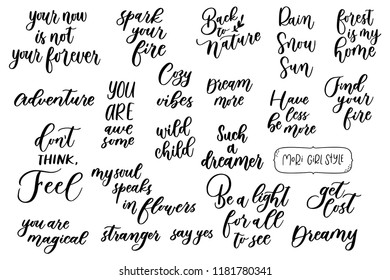 your now
is not
your forever
spark
your
fire
Back
to
Nature
Rain
Snow
Sun
forest
is my
home
Adventure
YOU
ARE
awe
some
Cozy
vibes
Dream
more
Have
less
be more
Find
your
fire
don't
THINK,
Feel
wild
child
Such
a
dreamer
MORI GIRL STYLE
my soul
speaks
in flowers
Be a light
for all
to see
get
lost
you are
magical
stranger
say yes
Dreamy
shutterstock.com · 1181780341